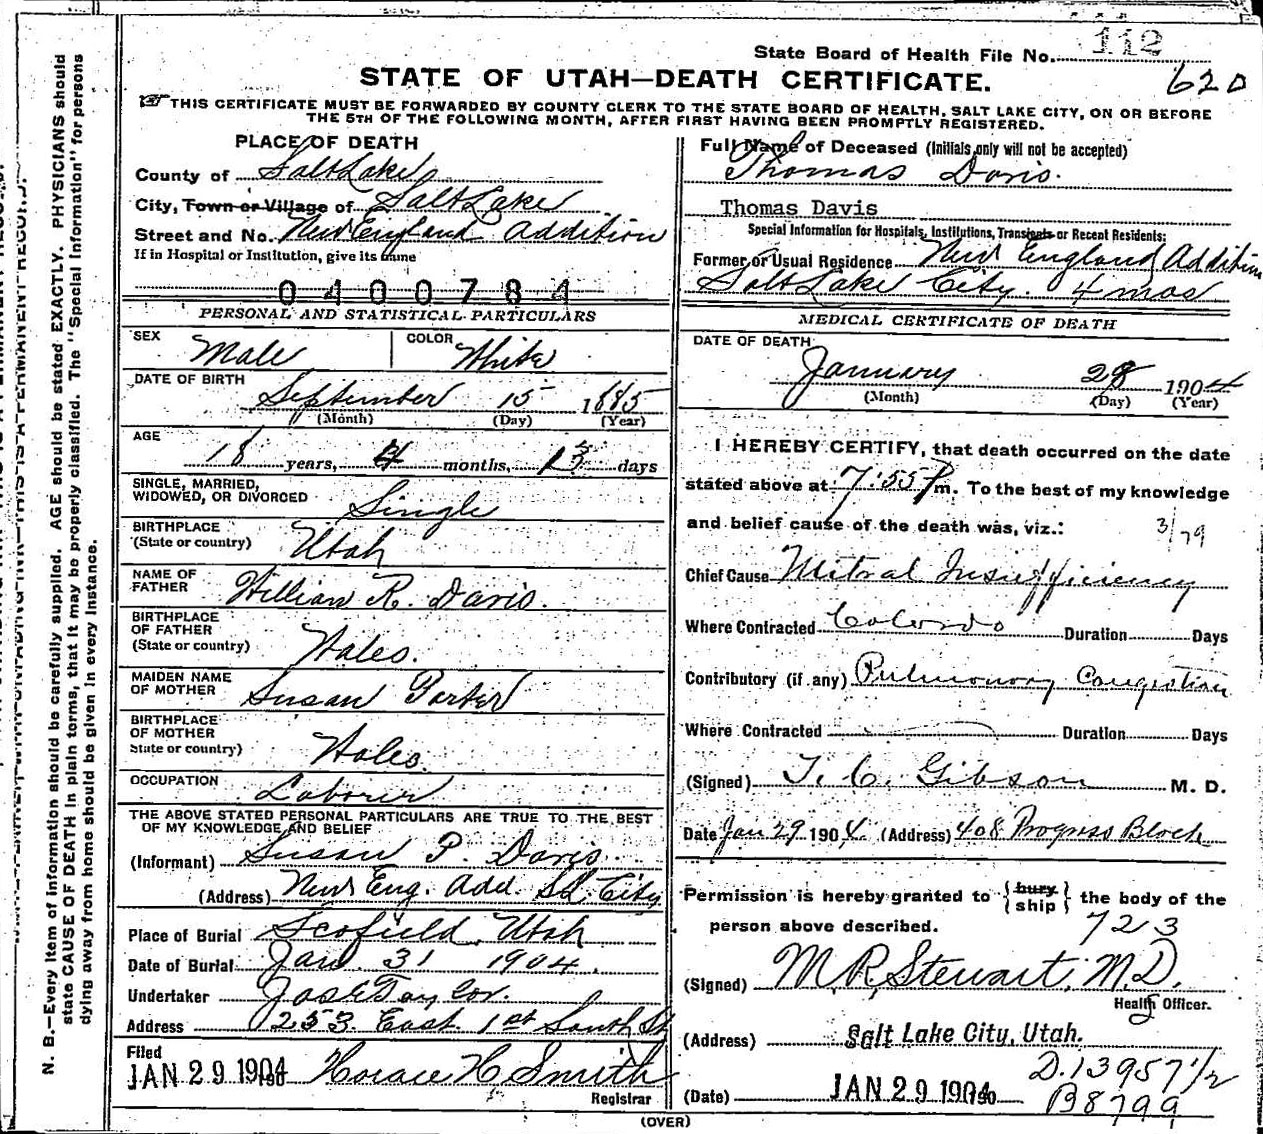 112
State Board of Health File No.
620
STATE OF UTAH—DEATH CERTIFICATE.
THIS CERTIFICATE MUST BE FORWARDED BY COUNTY CLERK TO THE STATE BOARD OF HEALTH, SALT LAKE CITY, ON OR BEFORE
THE 5TH OF THE FOLLOWING MONTH, AFTER FIRST HAVING BEEN PROMPTLY REGISTERED.
PLACE OF DEATH
County of Salt Lake
City, Town or Village of Salt Lake
Street and No. New England Addition
If in Hospital or Institution, give its name
0400784
PERSONAL AND STATISTICAL PARTICULARS
SEX Male COLOR White
DATE OF BIRTH
September 15 1885
(Month) (Day) (Year)
AGE
18 years, 4 months, 13 days
SINGLE, MARRIED,
WIDOWED, OR DIVORCED Single
BIRTHPLACE
(State or country) Utah
NAME OF
FATHER William R. Davis.
BIRTHPLACE
OF FATHER
(State or country) Wales.
MAIDEN NAME
OF MOTHER Susan Porter
BIRTHPLACE
OF MOTHER
State or country) Wales.
OCCUPATION Laborer
THE ABOVE STATED PERSONAL PARTICULARS ARE TRUE TO THE BEST
OF MY KNOWLEDGE AND BELIEF
(Informant) Susan P. Davis.
(Address) New Eng. Add. S.L. City
Place of Burial Scofield, Utah
Date of Burial Jan. 31 1904.
Undertaker Jos E Taylor.
Address 253 East 1st South St
Filed
JAN 29 1904 Horace H Smith
Registrar
Full Name of Deceased (Initials only will not be accepted)
Thomas Davis.
Thomas Davis
Special Information for Hospitals, Institutions, Transients or Recent Residents:
Former or Usual Residence New England Addition
Salt Lake City. 4 mos
MEDICAL CERTIFICATE OF DEATH
DATE OF DEATH
January 28 1904
(Month) (Day) (Year)
I HEREBY CERTIFY, that death occurred on the date
stated above at 7:55 P m. To the best of my knowledge
and belief cause of the death was, viz.:
3/79
Chief Cause Mitral Insufficiency
Where Contracted Colorado Duration Days
Contributory (if any) Pulmonary Congestion
Where Contracted Duration Days
(Signed) T. C. Gibson M. D.
Date Jan 29 1904. (Address) 408 Progress Block
Permission is hereby granted to {bury ship} the body of the
person above described. 723
(Signed) M R Stewart, M.D.
Health Officer.
(Address) Salt Lake City, Utah.
(Date) JAN 29 1904
D.13957 1/2
B8799
(OVER)
N. B.—Every item of information should be carefully supplied. AGE should be stated EXACTLY. PHYSICIANS should
state CAUSE OF DEATH in plain terms, that it may be properly classified. The "Special Information" for persons
dying away from home should be given in every instance.